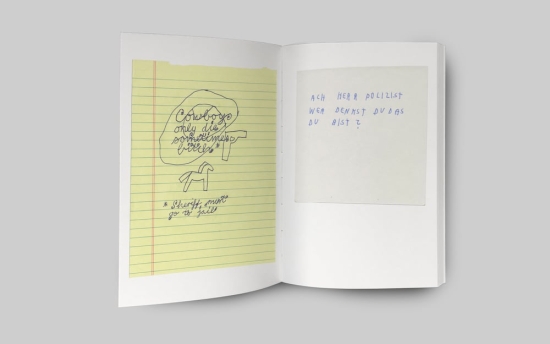 Cowboys
only die
sometimes
* Sheriff must
go to jail
ACH HERR POLIZIST
WER DENKST DU DAS
DU BIST ?